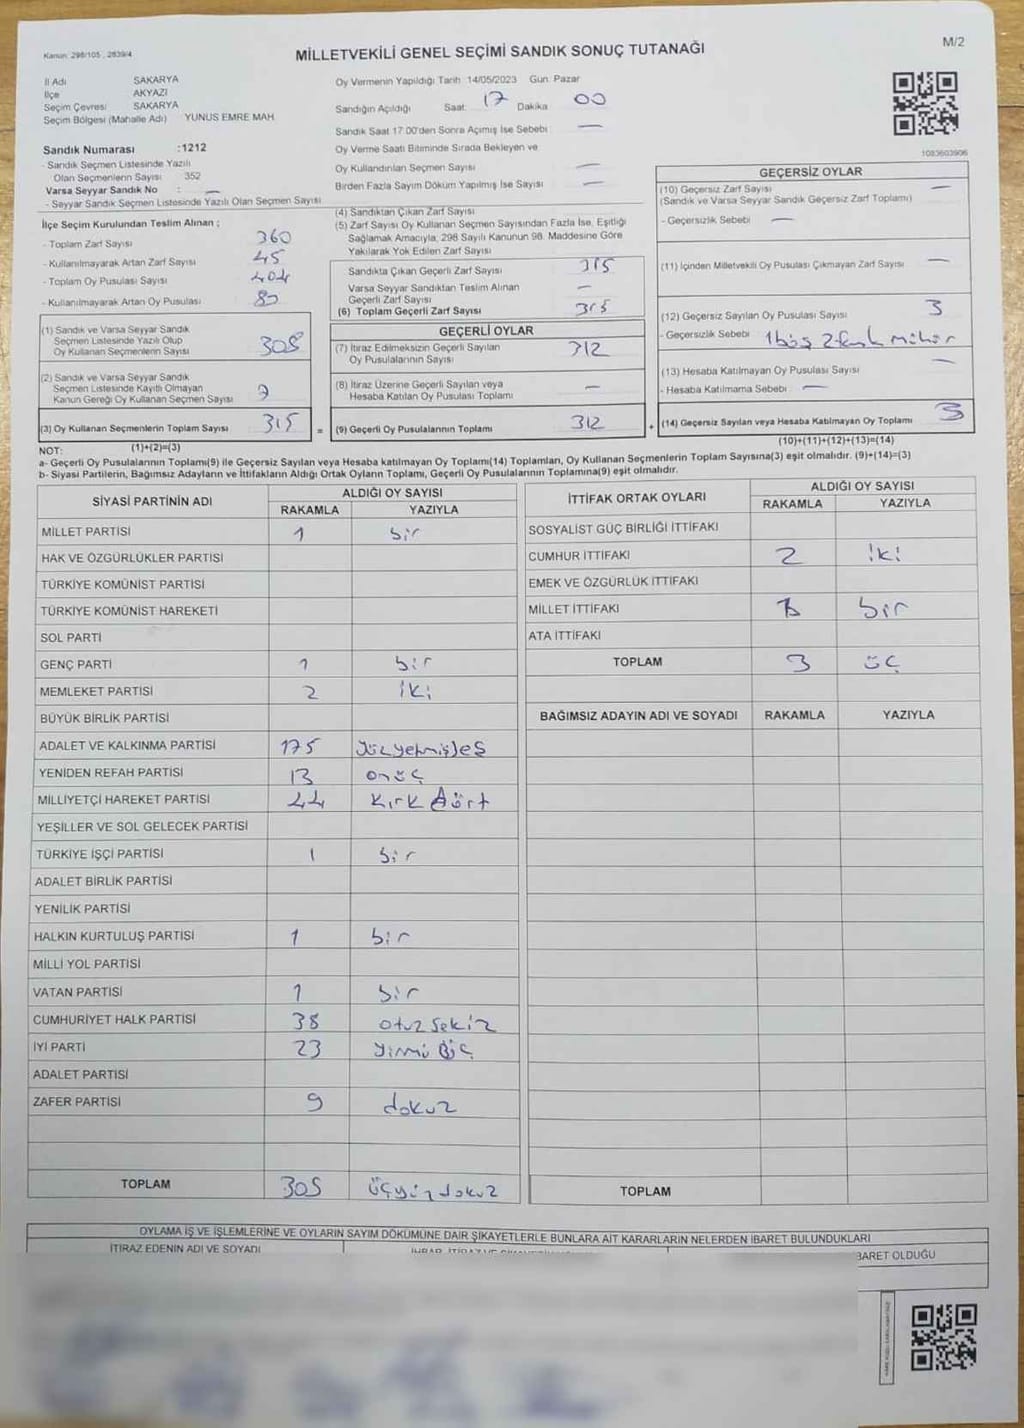 Kanun: 298/105 , 2839/4
MİLLETVEKİLİ GENEL SEÇİMİ SANDIK SONUÇ TUTANAĞI
M/2
İl Adı SAKARYA
İlçe AKYAZI
Seçim Çevresi SAKARYA
Seçim Bölgesi (Mahalle Adı) YUNUS EMRE MAH.
Oy Vermenin Yapıldığı Tarih: 14/05/2023 Gün: Pazar
Sandığın Açıldığı Saat: 17 Dakika 00
Sandık Saat 17.00'den Sonra Açımış İse Sebebi : —
Oy Verme Saati Bitiminde Sırada Bekleyen ve
Oy Kullandırılan Seçmen Sayısı —
Birden Fazla Sayım Döküm Yapılmış İse Sayısı —
1083603906
Sandık Numarası :1212
- Sandık Seçmen Listesinde Yazılı
Olan Seçmenlerin Sayısı : 352
Varsa Seyyar Sandık No : —
- Seyyar Sandık Seçmen Listesinde Yazılı Olan Seçmen Sayısı
İlçe Seçim Kurulundan Teslim Alınan ;
- Toplam Zarf Sayısı 360
- Kullanılmayarak Artan Zarf Sayısı 45
- Toplam Oy Pusulası Sayısı 404
- Kullanılmayarak Artan Oy Pusulası
(1) Sandık ve Varsa Seyyar Sandık
Seçmen Listesinde Yazılı Olup
Oy Kullanan Seçmenlerin Sayısı 308
(2) Sandık ve Varsa Seyyar Sandık
Seçmen Listesinde Kayıtlı Olmayan
Kanun Gereği Oy Kullanan Seçmen Sayısı 7
(3) Oy Kullanan Seçmenlerin Toplam Sayısı 315 =
(4) Sandıktan Çıkan Zarf Sayısı
(5) Zarf Sayısı Oy Kullanan Seçmen Sayısından Fazla İse, Eşitliği
Sağlamak Amacıyla; 298 Sayılı Kanunun 98. Maddesine Göre
Yakılarak Yok Edilen Zarf Sayısı
Sandıkta Çıkan Geçerli Zarf Sayısı 315
Varsa Seyyar Sandıktan Teslim Alınan
Geçerli Zarf Sayısı —
(6) Toplam Geçerli Zarf Sayısı 315
GEÇERLİ OYLAR
(7) İtiraz Edilmeksizin Geçerli Sayılan
Oy Pusulalarının Sayısı 312
(8) İtiraz Üzerine Geçerli Sayılan veya
Hesaba Katılan Oy Pusulası Toplamı —
(9) Geçerli Oy Pusulalarının Toplamı 312 +
GEÇERSİZ OYLAR
(10) Geçersiz Zarf Sayısı —
(Sandık ve Varsa Seyyar Sandık Geçersiz Zarf Toplamı)
- Geçersizlik Sebebi : —
(11) İçinden Milletvekili Oy Pusulası Çıkmayan Zarf Sayısı —
(12) Geçersiz Sayılan Oy Pusulası Sayısı 3
- Geçersizlik Sebebi : 1 boş 2 mühür
(13) Hesaba Katılmayan Oy Pusulası Sayısı —
- Hesaba Katılmama Sebebi : —
(14) Geçersiz Sayılan veya Hesaba Katılmayan Oy Toplamı 3
NOT: (1)+(2)=(3) (10)+(11)+(12)+(13)=(14)
a- Geçerli Oy Pusulalarının Toplamı(9) ile Geçersiz Sayılan veya Hesaba katılmayan Oy Toplamı(14) Toplamları, Oy Kullanan Seçmenlerin Toplam Sayısına(3) eşit olmalıdır. (9)+(14)=(3)
b- Siyasi Partilerin, Bağımsız Adayların ve İttifakların Aldığı Ortak Oyların Toplamı, Geçerli Oy Pusulalarının Toplamına(9) eşit olmalıdır.
SİYASİ PARTİNİN ADI ALDIĞI OY SAYISI
RAKAMLA YAZIYLA
MİLLET PARTİSİ 1 bir
HAK VE ÖZGÜRLÜKLER PARTİSİ
TÜRKİYE KOMÜNİST PARTİSİ
TÜRKİYE KOMÜNİST HAREKETİ
SOL PARTİ
GENÇ PARTİ 1 bir
MEMLEKET PARTİSİ 2 iki
BÜYÜK BİRLİK PARTİSİ
ADALET VE KALKINMA PARTİSİ 175 yüzyetmişbeş
YENİDEN REFAH PARTİSİ 13 onüç
MİLLİYETÇİ HAREKET PARTİSİ 44 kırk dört
YEŞİLLER VE SOL GELECEK PARTİSİ
TÜRKİYE İŞÇİ PARTİSİ 1 bir
ADALET BİRLİK PARTİSİ
YENİLİK PARTİSİ
HALKIN KURTULUŞ PARTİSİ 1 bir
MİLLİ YOL PARTİSİ
VATAN PARTİSİ 1 bir
CUMHURİYET HALK PARTİSİ 38 otuz sekiz
İYİ PARTİ 23 yirmi üç
ADALET PARTİSİ
ZAFER PARTİSİ 9 dokuz
TOPLAM 309 üçyüz dokuz
İTTİFAK ORTAK OYLARI ALDIĞI OY SAYISI
RAKAMLA YAZIYLA
SOSYALİST GÜÇ BİRLİĞİ İTTİFAKI
CUMHUR İTTİFAKI 2 iki
EMEK VE ÖZGÜRLÜK İTTİFAKI
MİLLET İTTİFAKI 1 bir
ATA İTTİFAKI
TOPLAM 3 üç
BAĞIMSIZ ADAYIN ADI VE SOYADI RAKAMLA YAZIYLA
TOPLAM
OYLAMA İŞ VE İŞLEMLERİNE VE OYLARIN SAYIM DÖKÜMÜNE DAİR ŞİKAYETLERLE BUNLARA AİT KARARLARIN NELERDEN İBARET BULUNDUKLARI
İTİRAZ EDENİN ADI VE SOYADI
BARET OLDUĞU